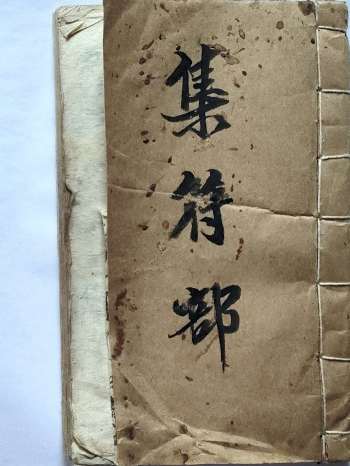 集符部